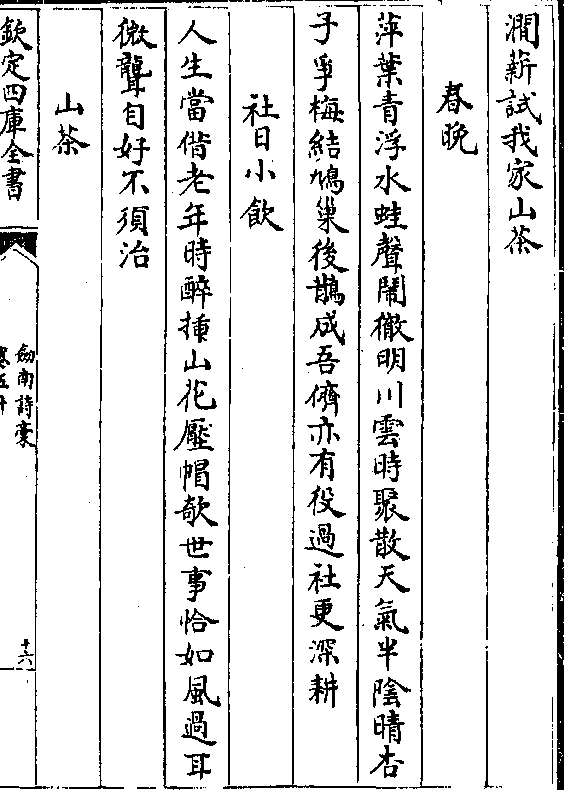 澗薪試我家山茶
春晚
萍葉青浮水蛙聲鬧徹明川雲時聚散天氣半陰晴杏
子爭梅結鳩巢後鵲成吾儕亦有役過社更深耕
社日小飲
人生當偕老年時醉揷山花壓帽欹世事恰如風過耳
微聾自好不須治
山茶
欽定四庫全書
劒南詩稾
卷五十
十六